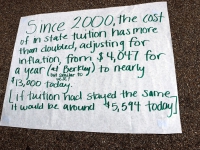 Since 2000, the cost
of in state tuition has more
than doubled, adjusting for
inflation, from $4,047 for
a year (at Berkley) to nearly
but similar to
$13,000 today.
(if tuition had stayed the same
it would be around $5,594 today)